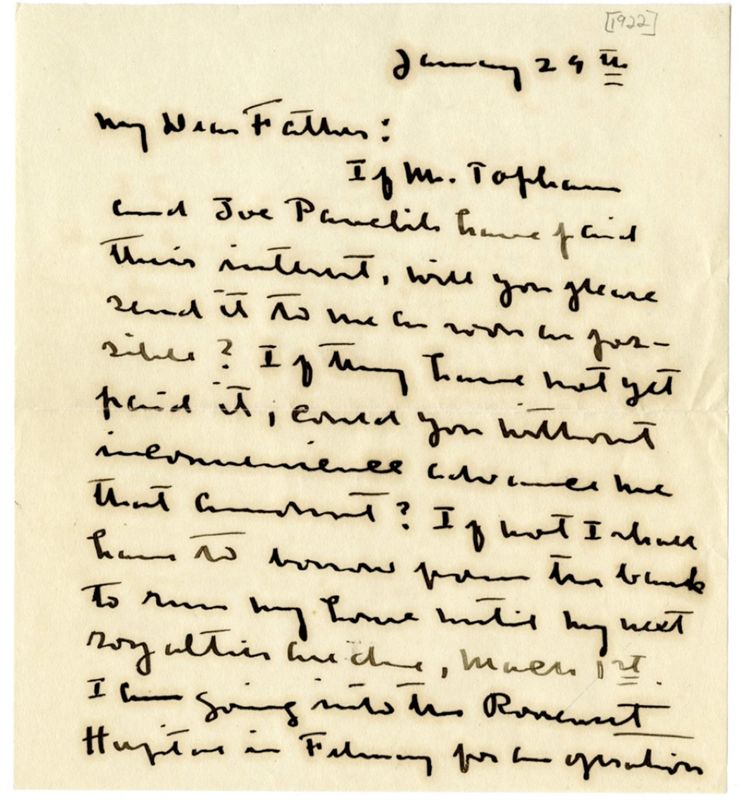 [1922]
January 29th
My Dear Father:
If Mr. Topham
and Joe Pavelik have paid
their interest, will you please
send it to me as soon as pos-
sible? If they have not yet
paid it, could you without
inconvenience advance me
that amount? If not I shall
have to borrow from the bank
to run my house until my next
royalties are due, March 1st.
I am going into the Roosevelt
Hospital in February for an operation